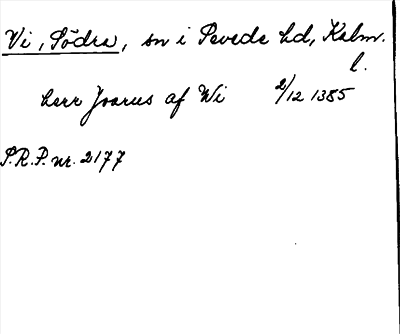 Vi, Södra, sn i Sevede hd, Kalm.
l.
herr Joarus af Wi 2/12 1385
S.R.P. nr. 2177